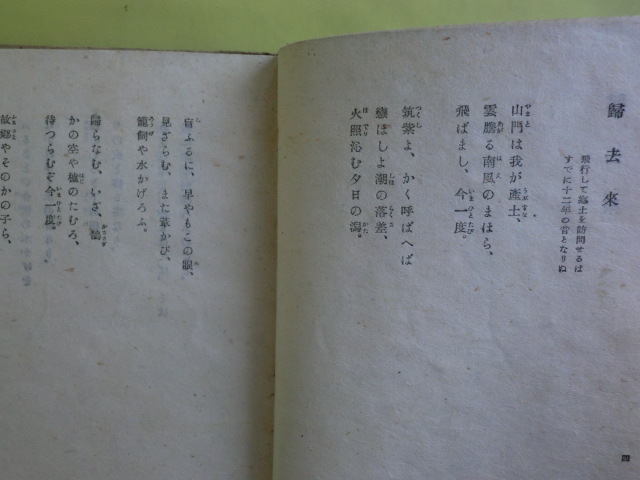 歸去來
飛行して鄕土を訪問せるは
すでに十二年の昔となりぬ
山門は我が產土、
雲騰る南風のまほら、
飛ばまし、今一度。
筑紫よ、かく呼ばへば
戀ほしよ潮の落差、
火照沁む夕日の潟。
盲ふるに、早やもこの眼、
見ざらむ、また葦かび、
籠飼や水かげろふ。
歸らなむ、いざ、鵲
かの空や櫨のたむろ、
待つらむぞ今一度。
故鄕やそのかの子ら、
四